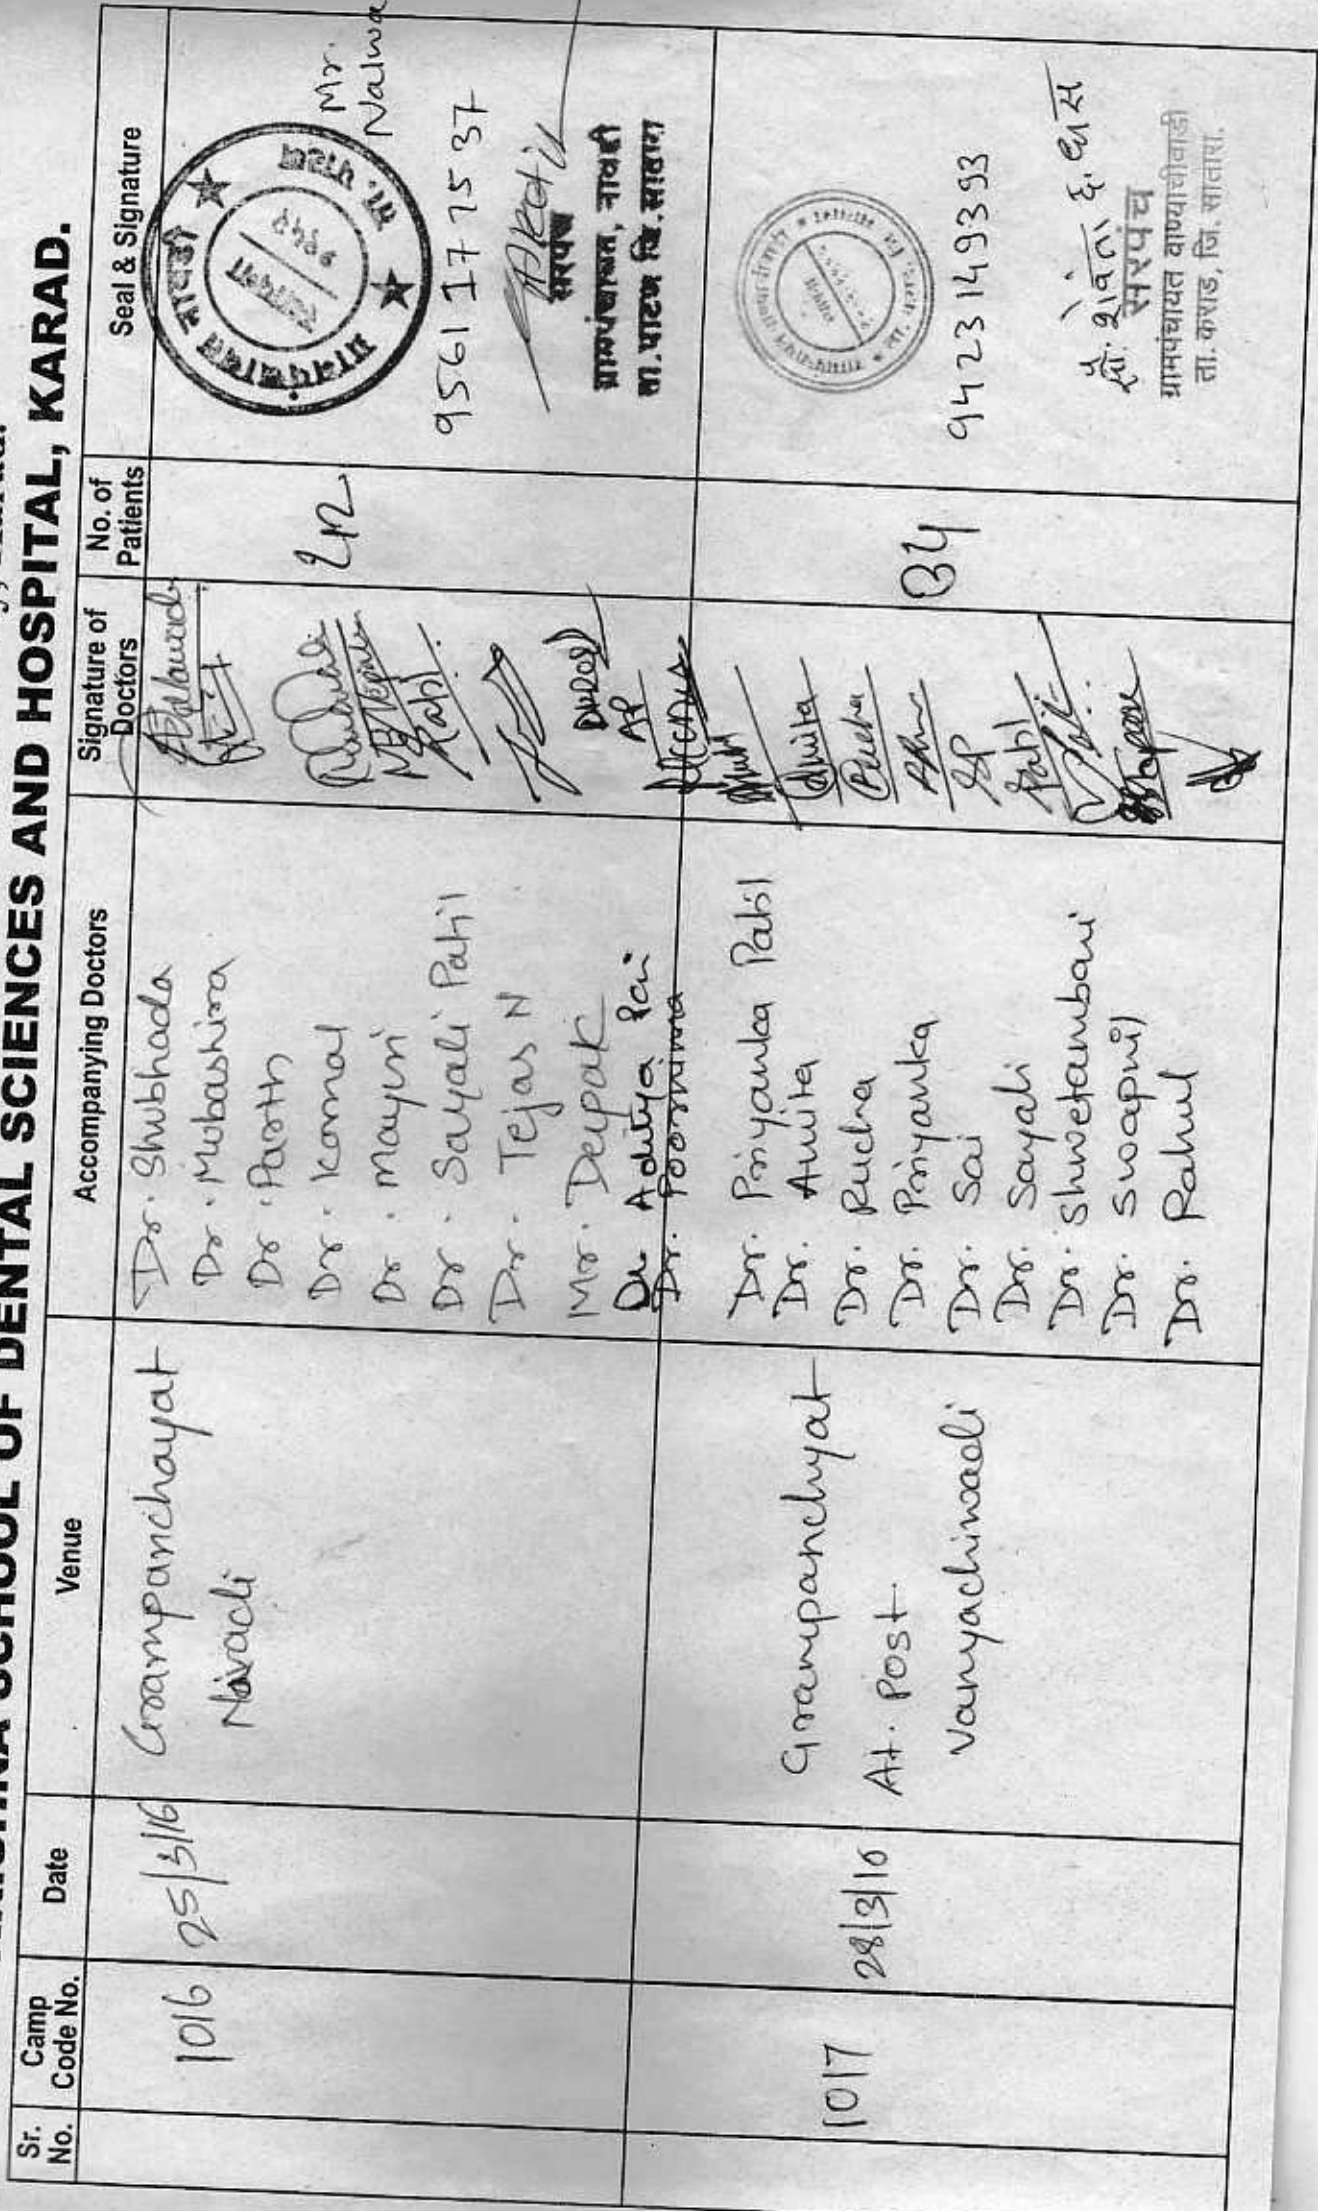 SCHOOL OF DENTAL SCIENCES AND HOSPITAL, KARAD.
Sr. No.
Camp Code No.
Date
Venue
Accompanying Doctors
Signature of Doctors
No. of Patients
Seal & Signature
1016
25/3/16
Grampanchayat
Navadi
Dr. Shubhada
Dr. Mubashira
Dr. Parth
Dr. Komal
Dr. Mayuri
Dr. Sayali Patil
Dr. Tejas N
Mr. Deepak
Dr. Aditya Pai
Dr. Poornima
42
ग्रामपंचायत नावडी
ता. पाटण
स्थापना
Mr.
Nalwa
9561177537
सरपंच
ग्रामपंचायत, नावडी
ता. पाटण जि. सातारा
1017
28/3/16
Grampanchyat
At. Post
Vanyachiwadi
Dr. Priyanka Patil
Dr. Amita
Dr. Rucha
Dr. Priyanka
Dr. Sai
Dr. Sayali
Dr. Shwetambari
Dr. Swapnil
Dr. Rahul
34
9423149393
सरपंच
ग्रामपंचायत वाण्याचीवाडी
ता. कराड, जि. सातारा.